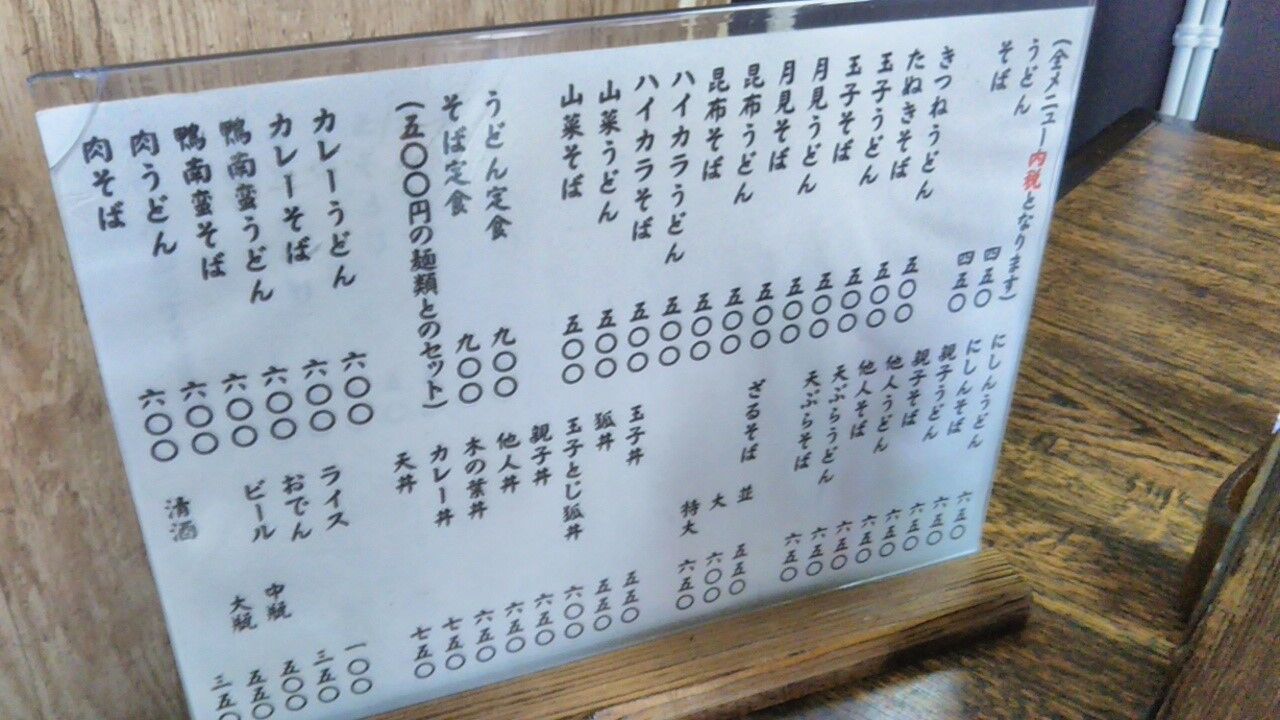 (全メニュー内税となります)
うどん 四五〇
そば 四五〇
きつねうどん 五〇〇
たぬきそば 五〇〇
玉子うどん 五〇〇
玉子そば 五〇〇
月見うどん 五〇〇
月見そば 五〇〇
昆布うどん 五〇〇
昆布そば 五〇〇
ハイカラうどん 五〇〇
ハイカラそば 五〇〇
山菜うどん 五〇〇
山菜そば 五〇〇
うどん定食 九〇〇
そば定食 九〇〇
(五〇〇円の麺類とのセット)
カレーうどん 六〇〇
カレーそば 六〇〇
鴨南蛮うどん 六〇〇
鴨南蛮そば 六〇〇
肉うどん 六〇〇
肉そば 六〇〇
にしんうどん 六五〇
にしんそば 六五〇
親子うどん 六五〇
親子そば 六五〇
他人うどん 六五〇
他人そば 六五〇
天ぷらうどん 六五〇
天ぷらそば 六五〇
ざるそば 並 五五〇
大 六〇〇
特大 六五〇
玉子丼 五五〇
狐丼 五五〇
玉子とじ狐丼 六〇〇
親子丼 六五〇
他人丼 六五〇
木の葉丼 六五〇
カレー丼 七五〇
天丼 七五〇
ライス 一〇〇
おでん 三五〇
ビール 中瓶 五〇〇
大瓶 五五〇
清酒 三五〇